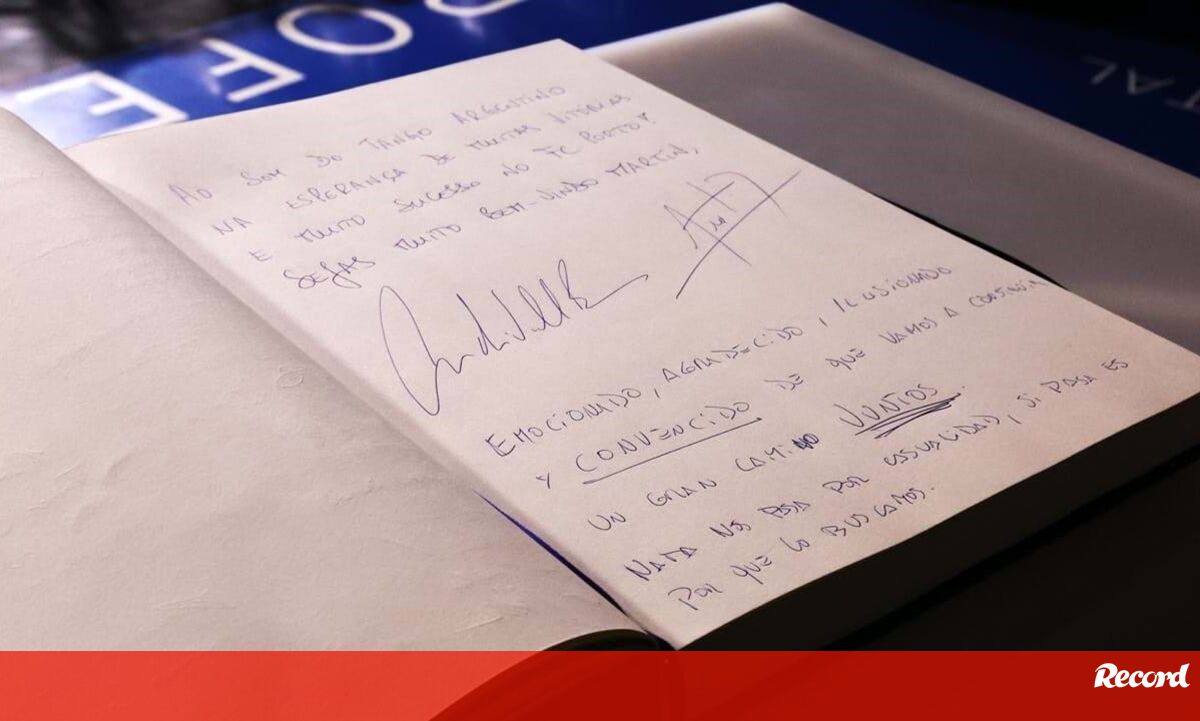 OFE
TAL
AO SOM DO TANGO ARGENTINO
NA ESPERANÇA DE MUITAS VITÓRIAS
E MUITO SUCESSO NO FC PORTO
SEJAS MUITO BEM-VINDO MARTÍN,
EMOCIONADO, AGRADECIDO, ILUSIONADO
Y CONVENCIDO DE QUE VAMOS A CONSTRUIR
UN GRAN CAMINO JUNTOS.
NADA NOS PASA POR CASUALIDAD, SI PASA ES
POR QUE LO BUSCAMOS.
Record